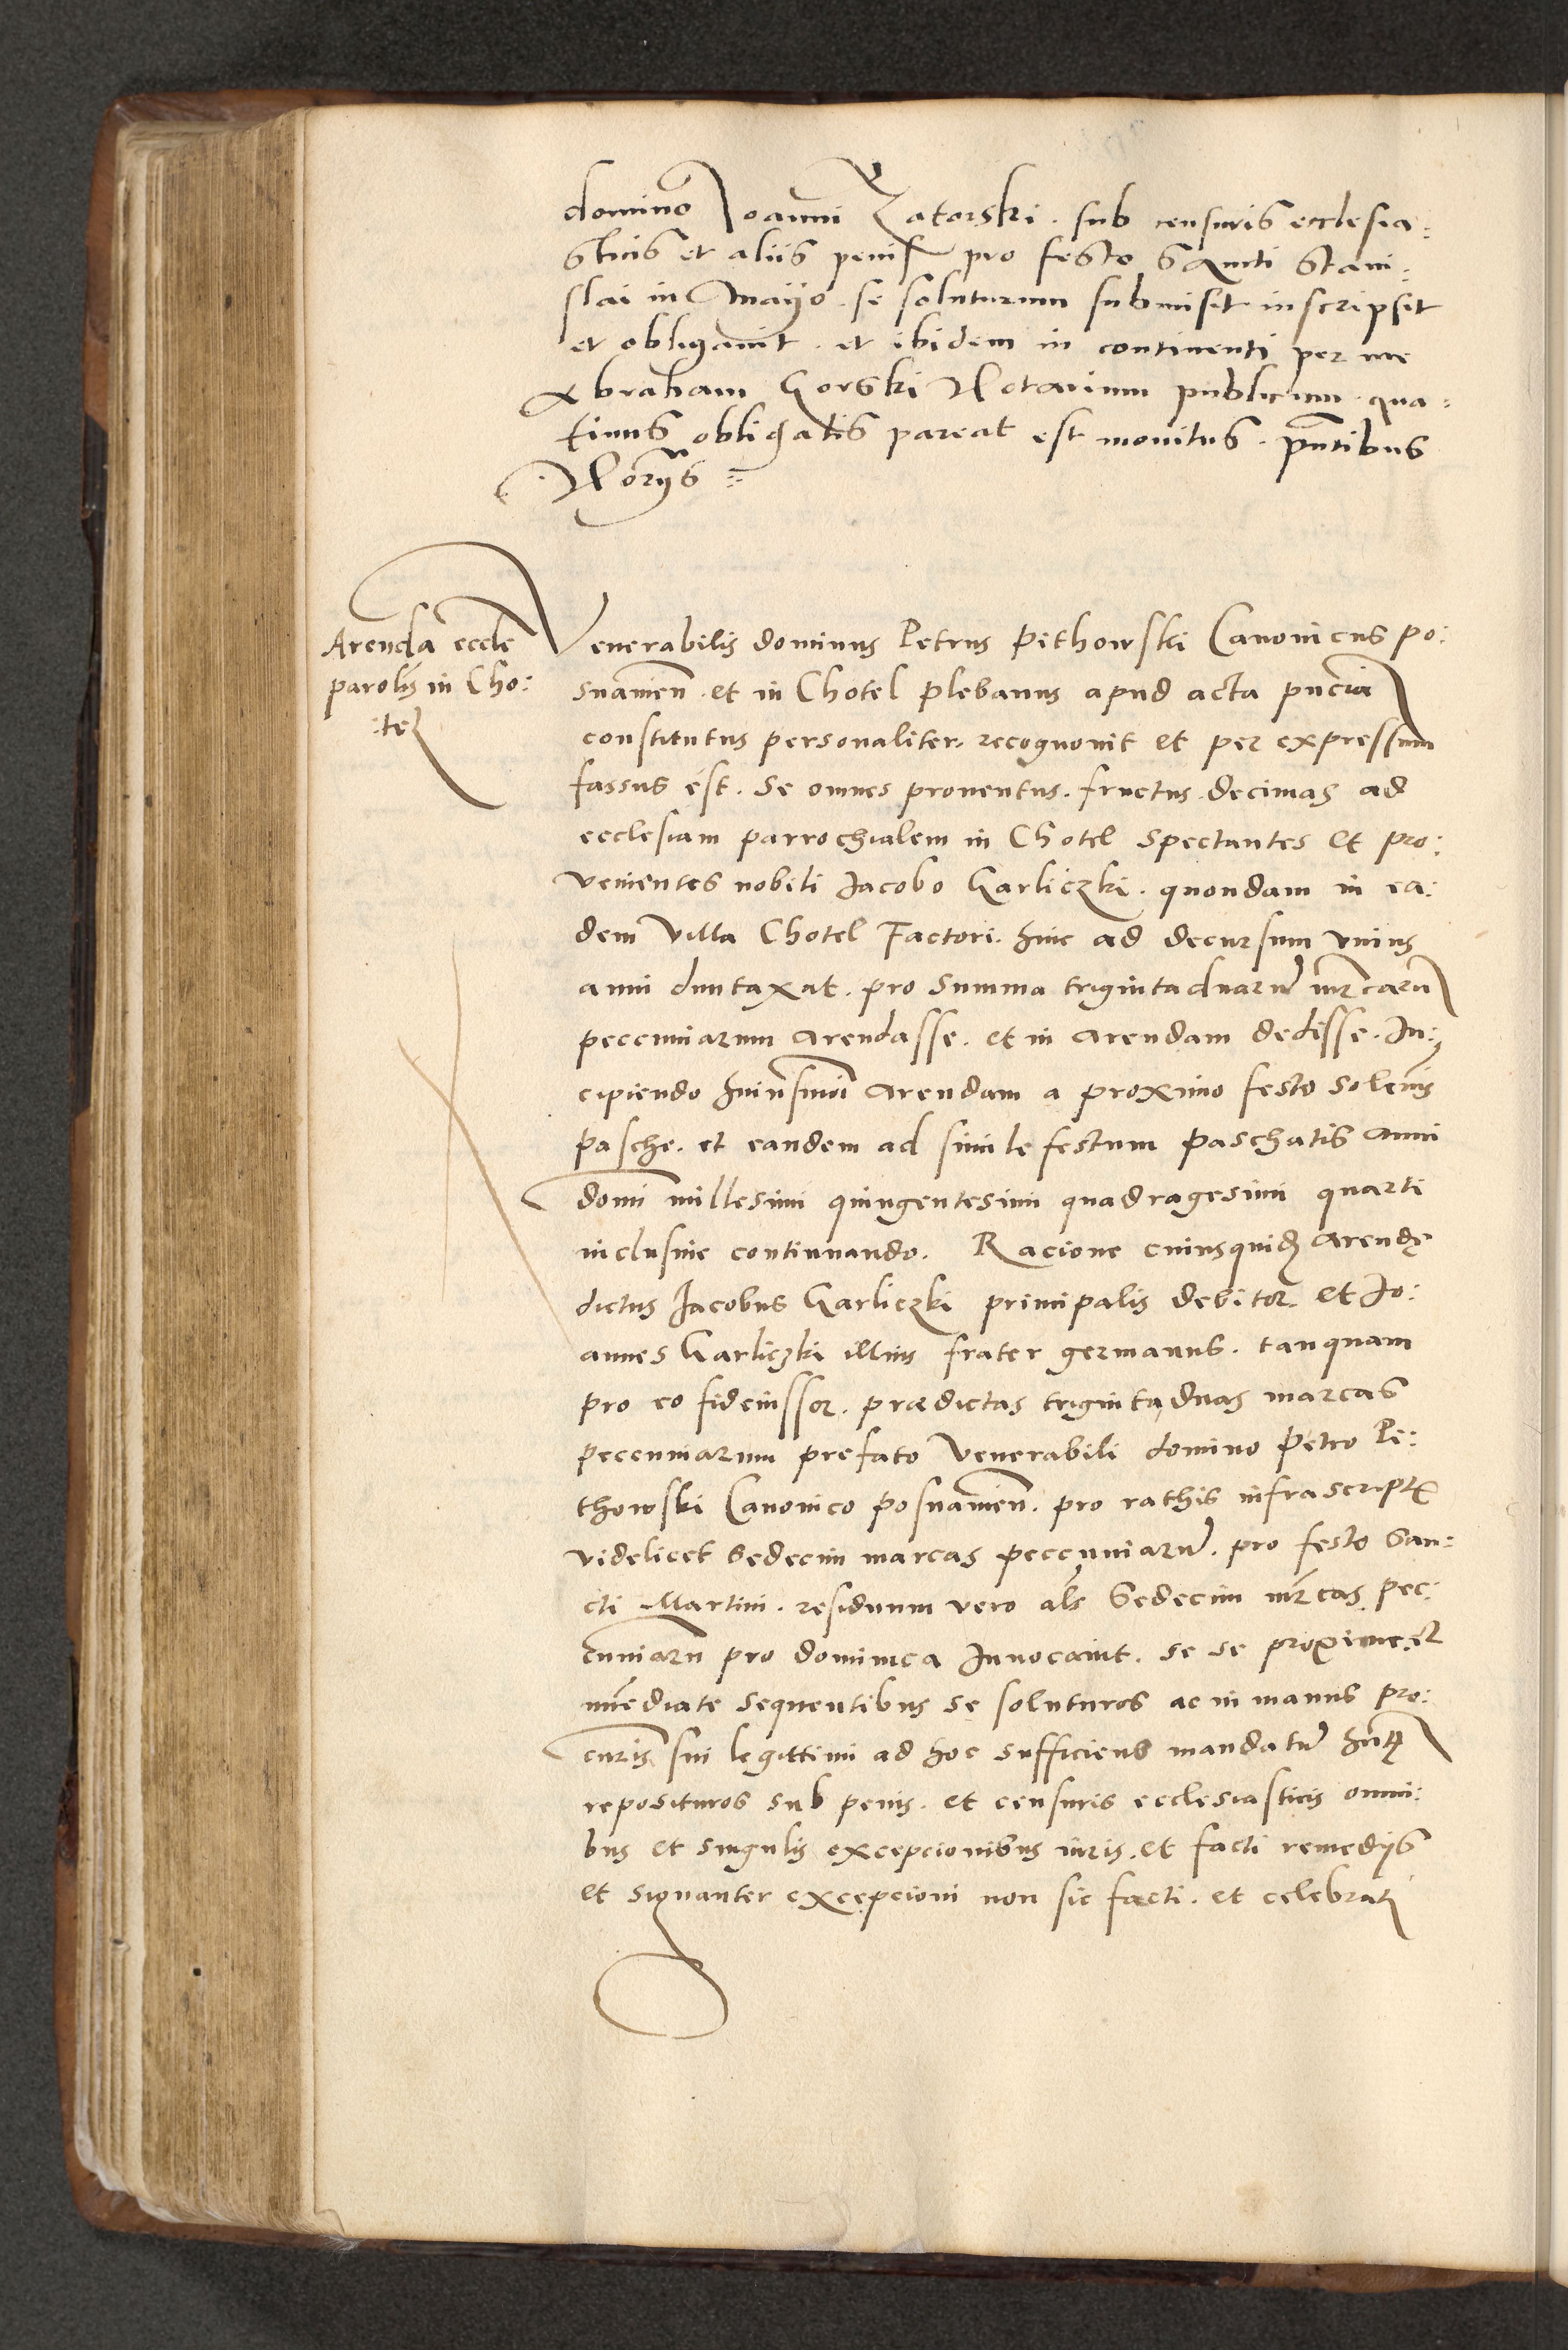 domino Joanni Zatorski . sub censuris ecclesia:
sticis et aliis penis pro festo Sancti Stani:
slai in Mayo . se soluturum submisit inscripsit
et obligavit . et ibidem in continenti per me
Abraham Gorski Notarium publicum . qua:
tinus obligatis pareat est monitus . pntibus
Noriis
Arenda eccle
parolis in Cho:
:tel
Venerabilis dominus Petrus Pethowski Canonicus po:
snanien . et in Chotel plebanus apud acta pncia
constitutus personaliter . recognovit et per expressum
fassus est . se omnes proventus . fructus . decimas ad
ecclesiam parrochialem in Chotel spectantes et pro:
venientes nobili Jacobo Garliczki . quondam in ea:
dem villa Chotel Factori . hinc ad decursum unius
anni duntaxat . pro summa trigintaduarum mrcarum
peccuniarum arendasse . et in arendam dedisse . In:
cipiendo huiusmoi arendam a proximo festo solennis
pasche . et eandem ad simile festum paschatis anni
domi millesimi quingentesimi quadragesimi quarti
inclusive continuando . Racione cuiusquid arendę
dictus Jacobus Garliczki principalis debitor . et Jo:
annes Garliczki illius frater germanus . tanquam
pro eo fideiussor . prædictas trigintaduas marcas
peccuniarum prefato venerabili domino Petro Pe:
thowski Canonico posnanien . pro rathis infrascriptis
videlicet sedecim marcas peccuniarum . pro festo San:
cti Martini . residuum vero als sedecim mrcas pec:
cuniaru pro dominica Invocavit . se se proxime et
imediate sequentibus se soluturos ac in manus pro:
curis sui legittimi ad hoc sufficiens mandatum hntis
reposituros sub penis . et censuris ecclesiasticis omni:
bus et singulis excepcionibus iuris . et facti remediis
et signanter excepcioni non sic facti . et celebrati